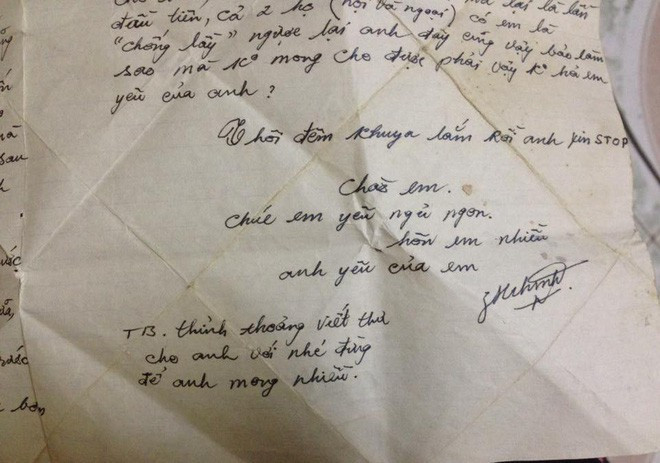 đầu tiên, cả 2 họ (nội và ngoại) có em là
"chồng lấy" ngược lại anh đây cũng vậy bảo làm
sao mà K° mong cho được phải vậy K° hả em
yêu của anh?
Thôi đêm khuya lắm rồi anh xin STOP
Chào em.
chúc em yêu ngủ ngon.
hôn em nhiều
anh yêu của em
TB. thỉnh thoảng viết thư
cho anh với nhé đừng
để anh mong nhiều.